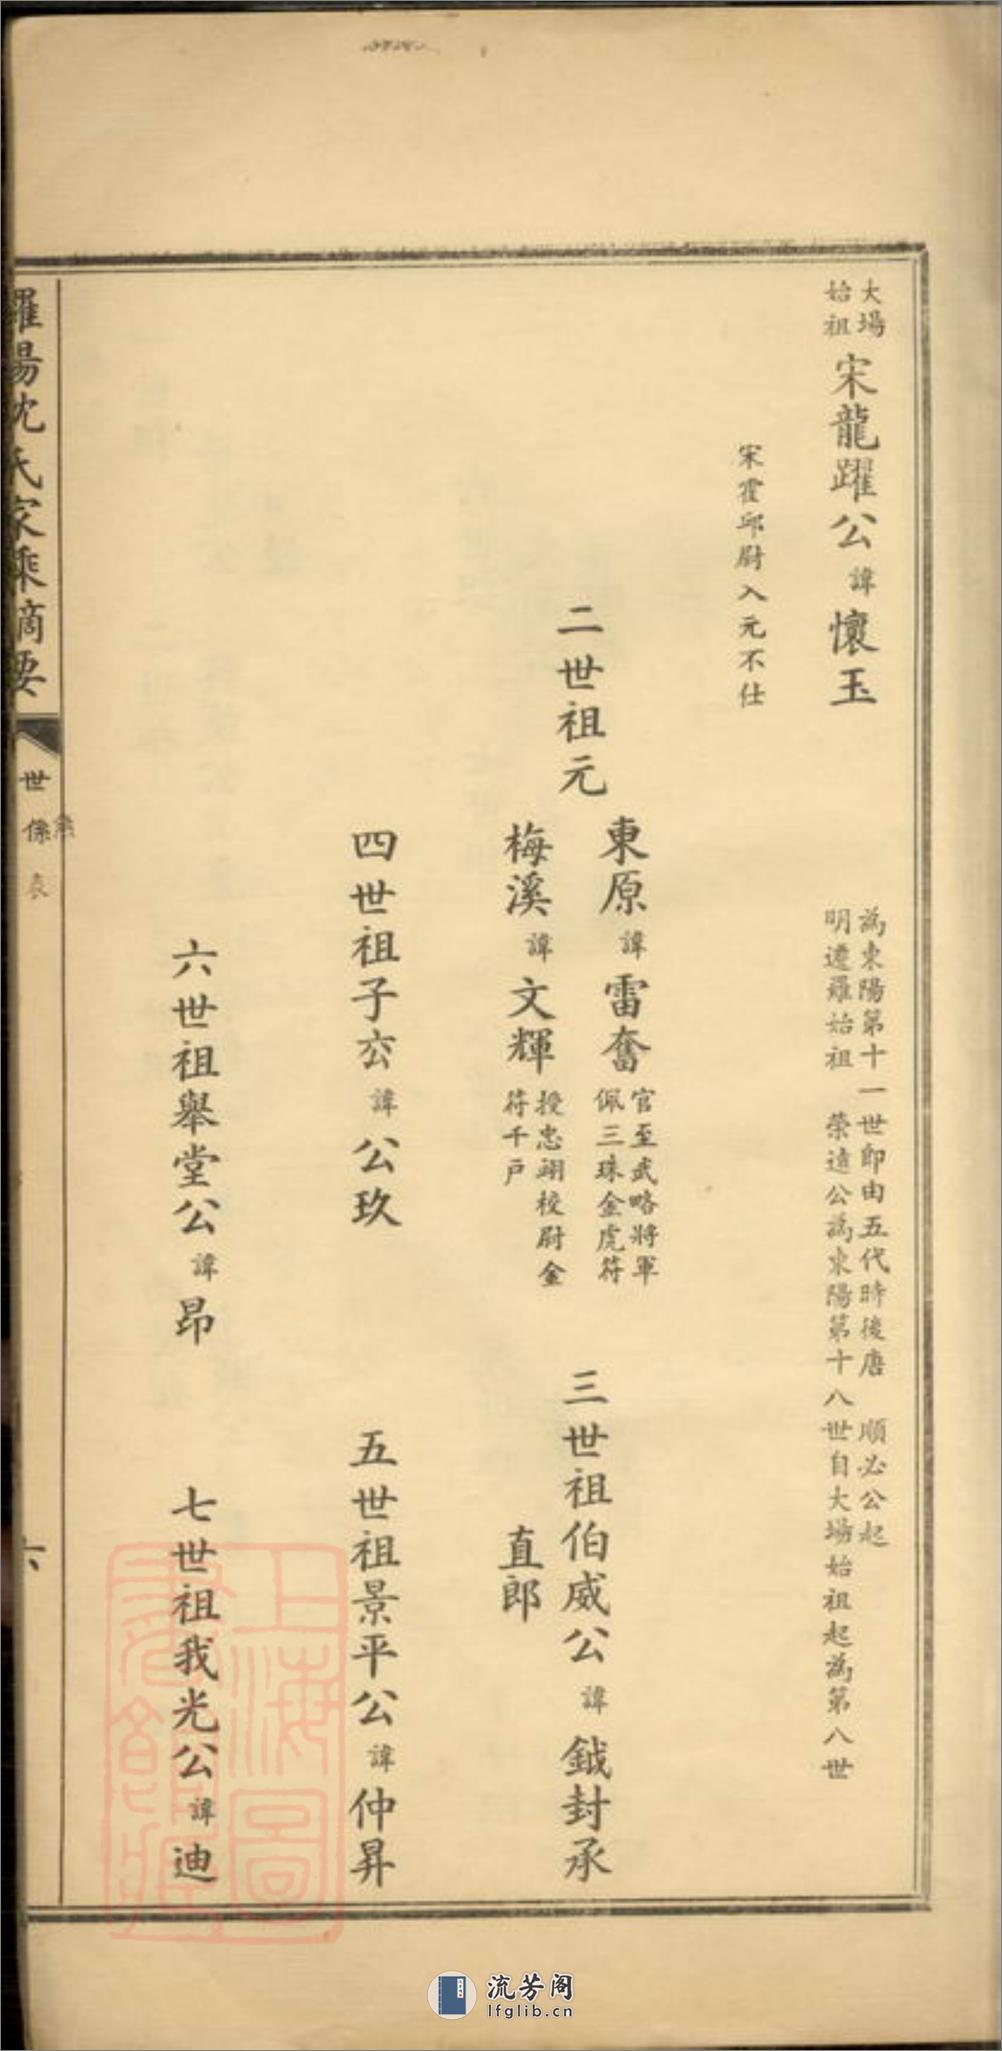 大場
始祖
宋龍躍公諱懷玉
為東陽第十一世即由五代時後唐 順必公起
明遷羅始祖 榮遠公為東陽第十八世自大場始祖起為第八世
宋霍邱尉入元不仕
二世祖元
東原諱雷奮
官至武略將軍
佩三珠金虎符
梅溪諱文輝
授忠翊校尉金
符千戶
三世祖伯威公諱鉞封承
直郎
四世祖子㳂諱公玖
五世祖景平公諱仲昇
六世祖舉堂公諱昂
七世祖我光公諱迪
羅陽沈氏家乘摘要
世係表
系
六
上海圖
書館藏
流芳阁
lfglib.cn